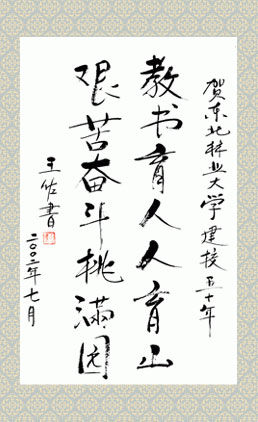 贺东北林业大学建校五十年
教书育人人育山
艰苦奋斗桃满园
王佐书
二〇〇二年七月